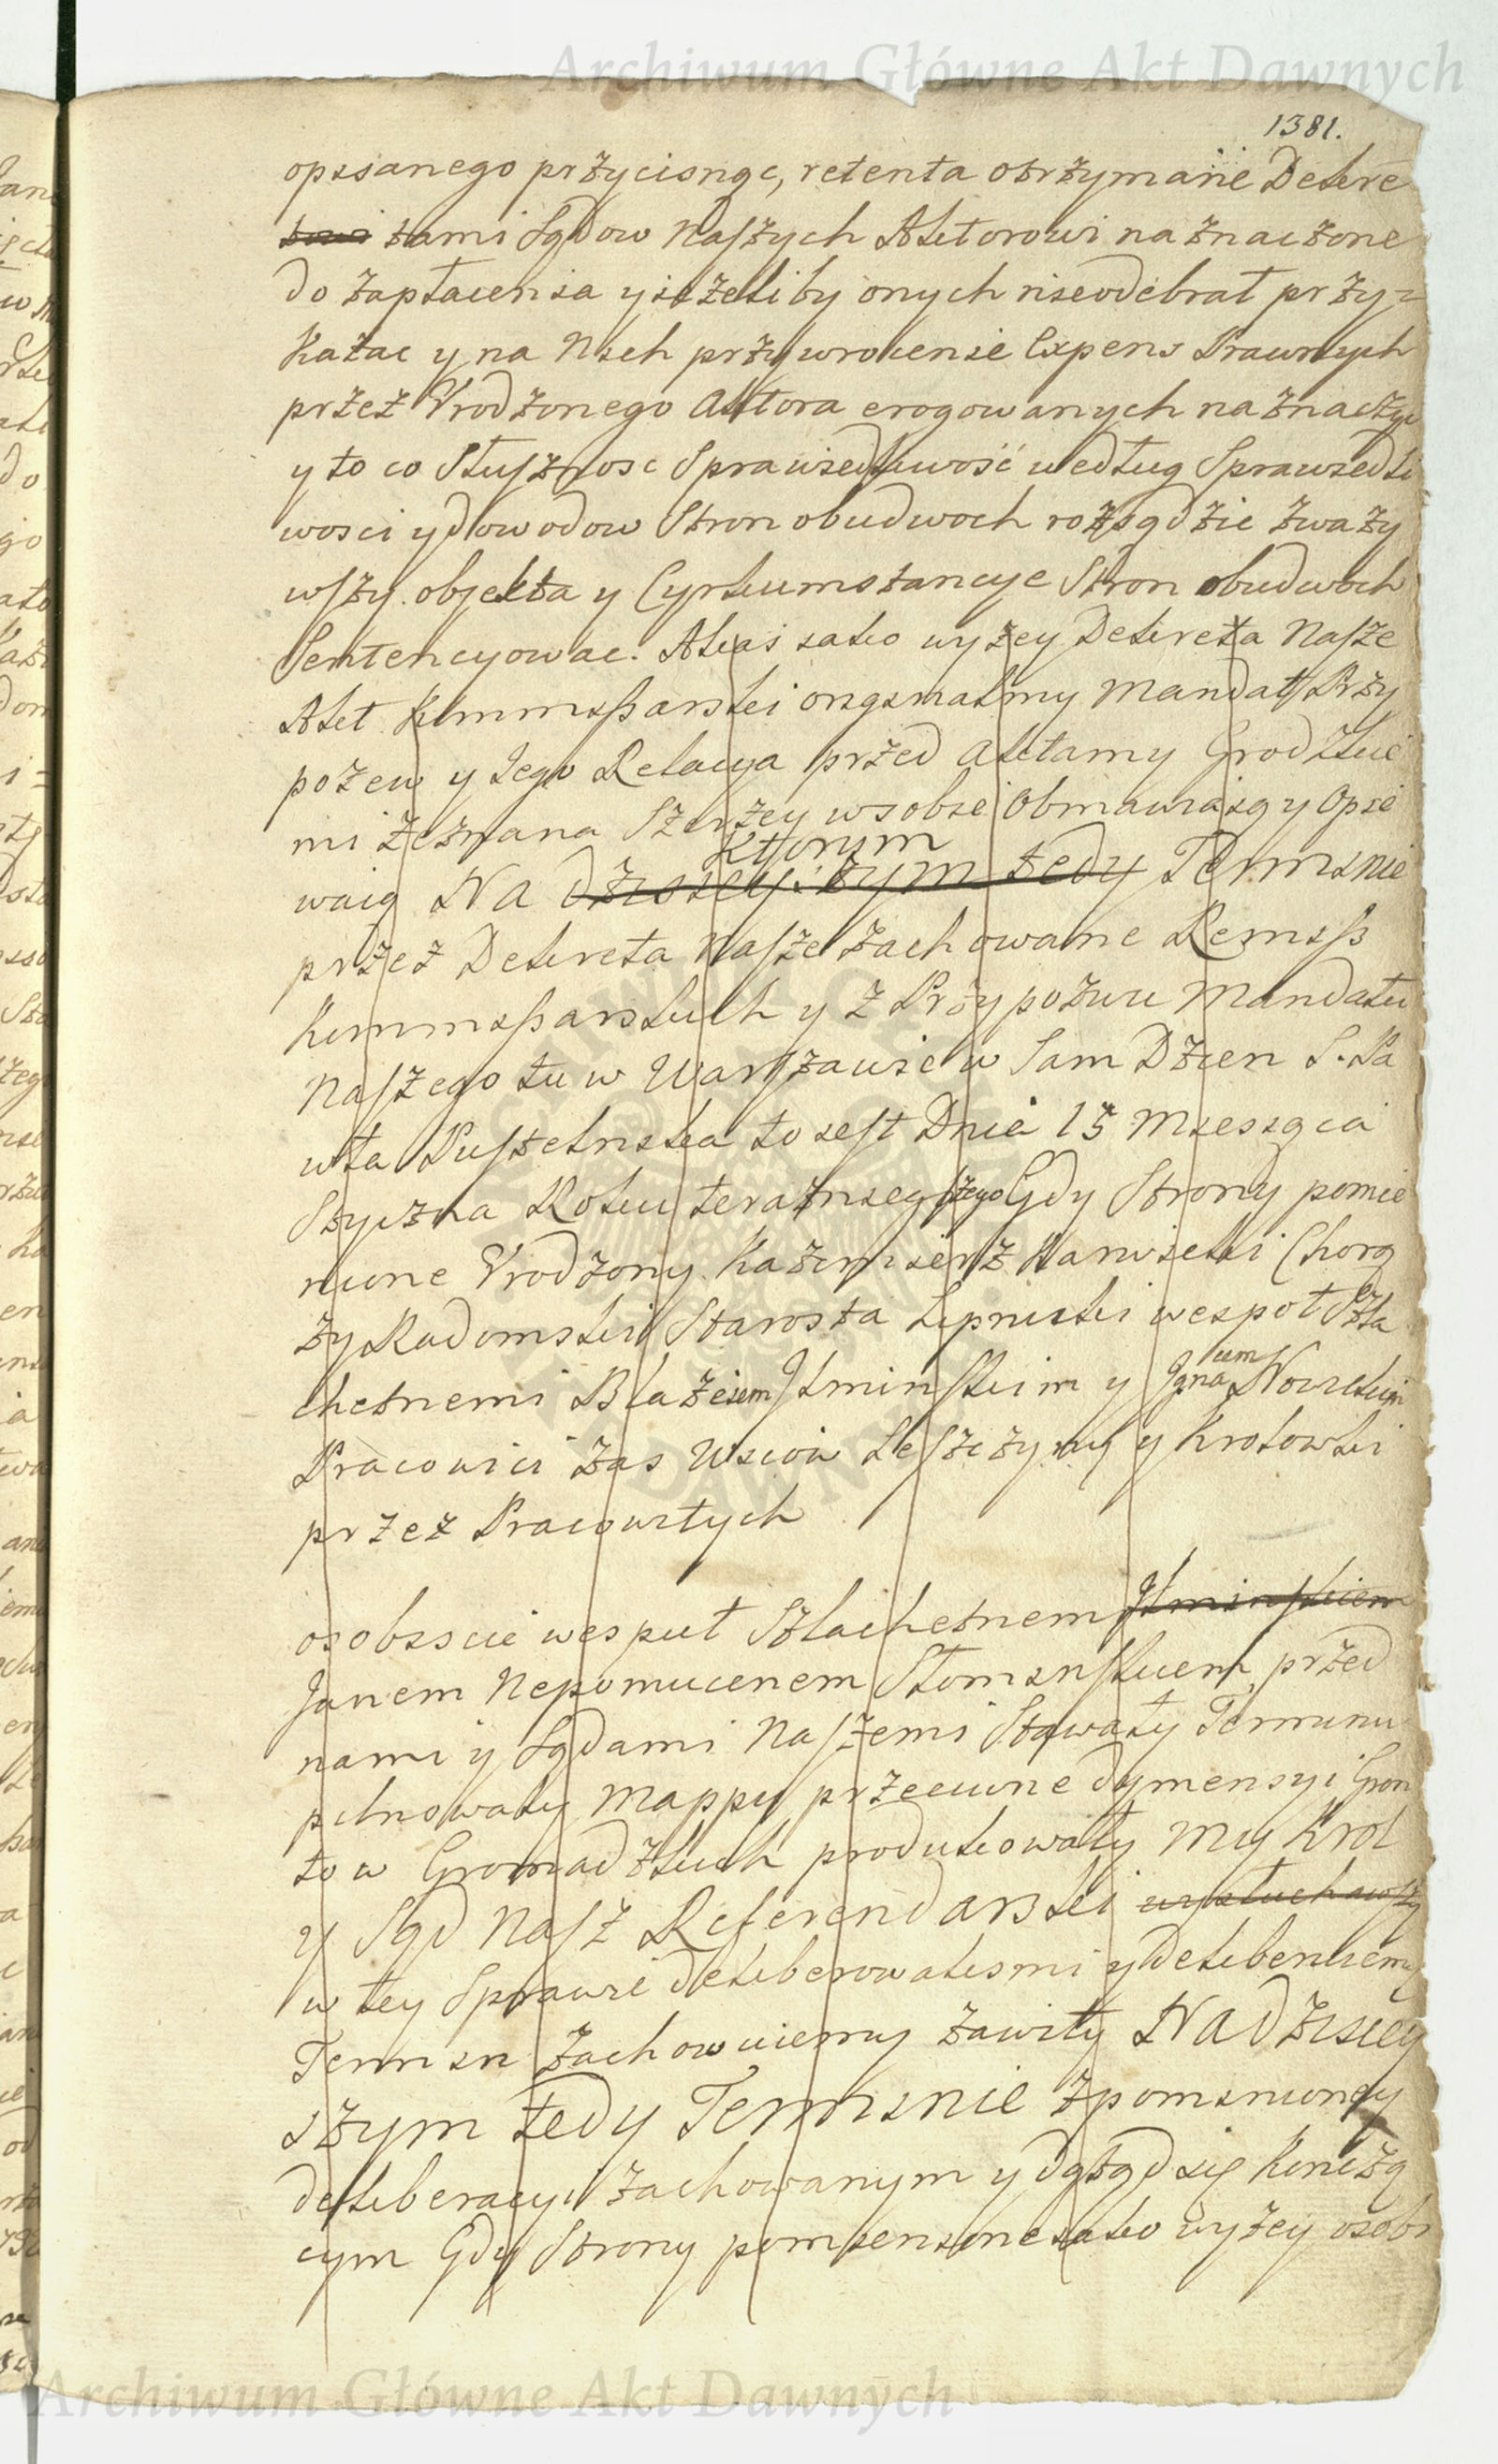 Archiwum Główne Akt Dawnych
1381.
opisanego przycisnąc, retenta otrzymane Dekre
towi tami Sądow Naszych Aktorowi naznaczone
do zapłacenia y ieżeliby onych nieodebrał przy=
kazac y na Nich przywrocenie Expens Prawnych
przez Urodzonego Aktora erogowanych naznaczyc
y to co Słuszność Sprawiedliwość według Sprawiedli
wosci y dowodow Stron obudwoch rozsądzie zwazy
wszy objekta y Cyrkumstancye Stron obudwoch
Sentencyowac. Akias iako wyżey Dekreta Nasze
Akt Kommissarski oryginalny Mandat Przy
pozew y Jego Relacya przed Aktamy Grodzkie
mi zeznana Szerzey w sobie Obmawiaią y Opie
waią Na dzisiey:szym tedy Terminie
Ktorym
przez Dekreta Nasze zachowane Remiss
Kommissarskich y z Przypozwu Mandatu
Naszego tu w Warszawie w Sam Dzien S. Pa
wła Pustelnika to iest Dnia 15 Miesiąca
Stycznia Roku teraznieyszego Gdy Strony pomie
nione Urodzony Kazimierz Karwicki Chorą
zy Radomski Starosta Lipnicki wespoł Szla
chetnemi Błazeiem Jłminskim y Jgnacem Nowickim
Pracowici zas Uscow Leszczyny y Krolowki
przez Pracowitych
osobiscie wespuł Szlachetnem Jłminskiem
Janem Nepomucenem Słominskiem przed
nami y Sądami Naszemi Stawały Terminu
pilnowały Mappy przeciwne dymensyi Gron
tow Gromadzkich produkowały My Krol
y Sąd Nasz Referendarski wysłuchawszy
w tey Sprawie deliberowalismi y Deliberuiemy
Termin zachowuiemy zawity Na Dzisiey
szym tedy Terminie zpomnioney
deliberacyi zachowanym y dotąd się Konczą
cym Gdy Strony pomienione iako wyżey osobi
Archiwum Główne Akt Dawnych